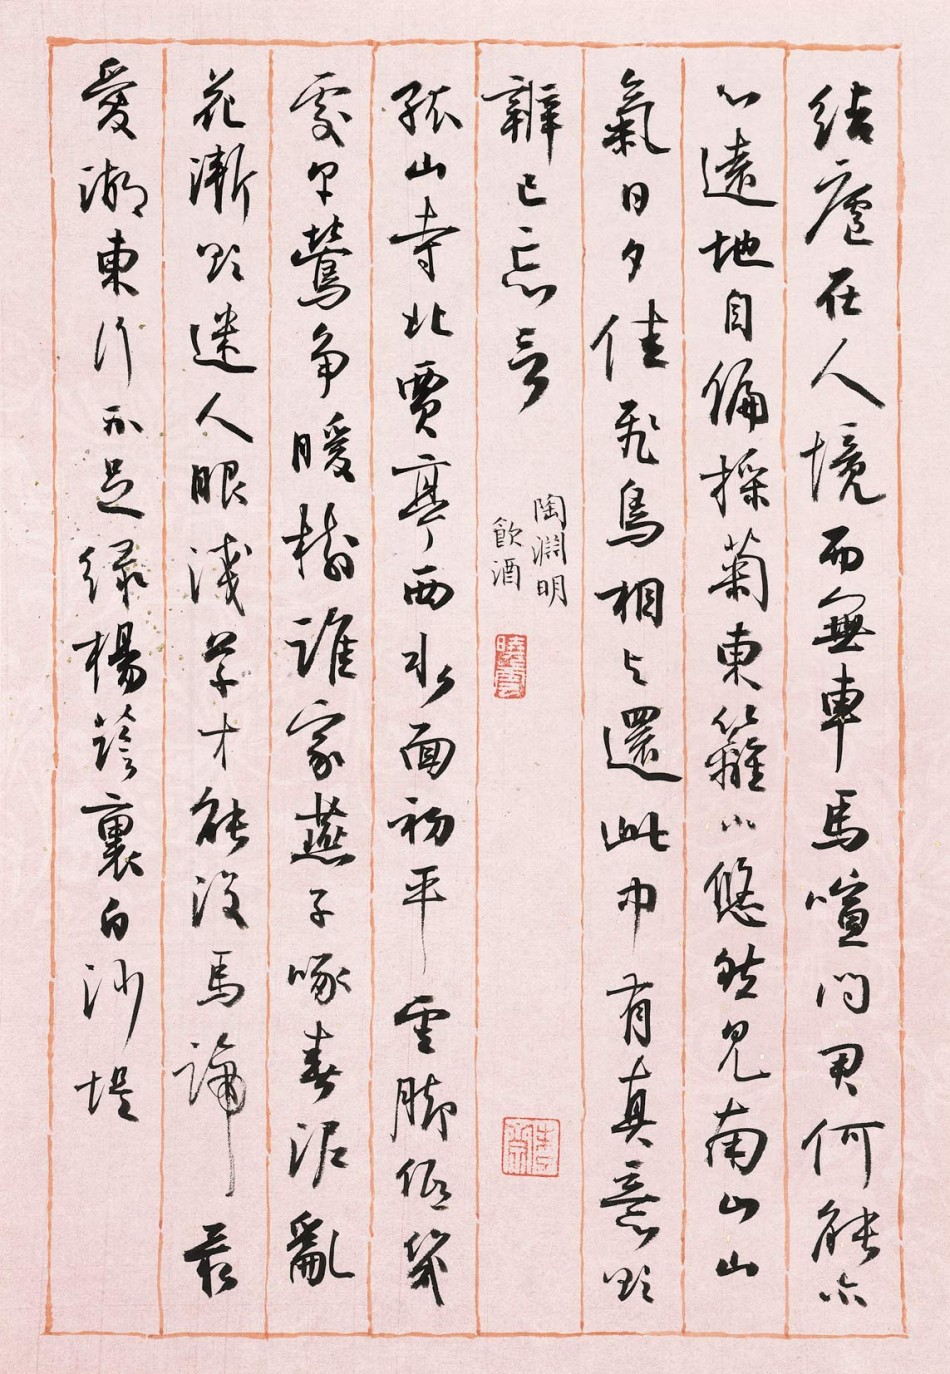 结廬在人境而無車馬喧问君何能尔
心遠地自偏採菊東籬下悠然見南山山
氣日夕佳飛鳥相与還此中有真意欲
辨已忘言
陶淵明
飲酒
孤山寺北賈亭西水面初平雲脚低幾
處早鶯爭暖樹誰家燕子啄春泥亂
花漸欲迷人眼淺草才能没馬蹄最
愛湖東行不足绿楊蔭裏白沙堤